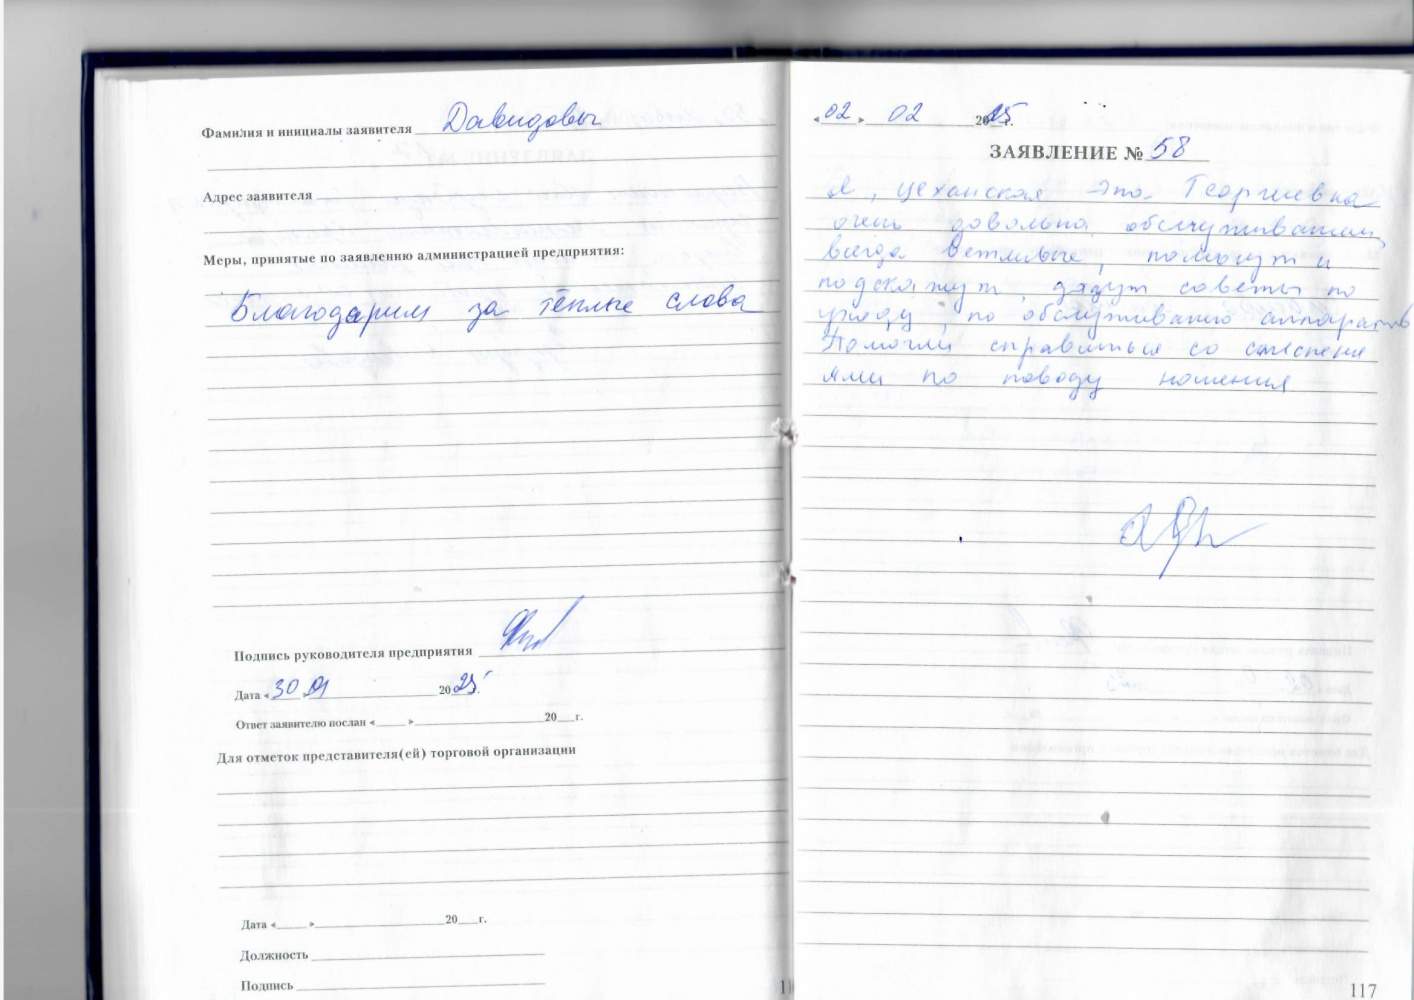 Фамилия и инициалы заявителя Давидовы
Адрес заявителя
Меры, принятые по заявлению администрацией предприятия:
Благодарим за тёплые слова
Подпись руководителя предприятия
Дата «30» 01 2025г.
Ответ заявителю послан « » 20 г.
Для отметок представителя(ей) торговой организации
Дата « » 20 г.
Должность
Подпись
«02» 02 2025г.
ЗАЯВЛЕНИЕ № 58
Я, Цеханская Георгиевна
очень довольна обслуживанием,
всегда ветливые, помогут и
подскажут, дадут советы по
уходу, по обслуживанию аппаратов
Помогли справиться со стеснени
ями по поводу ношения
117